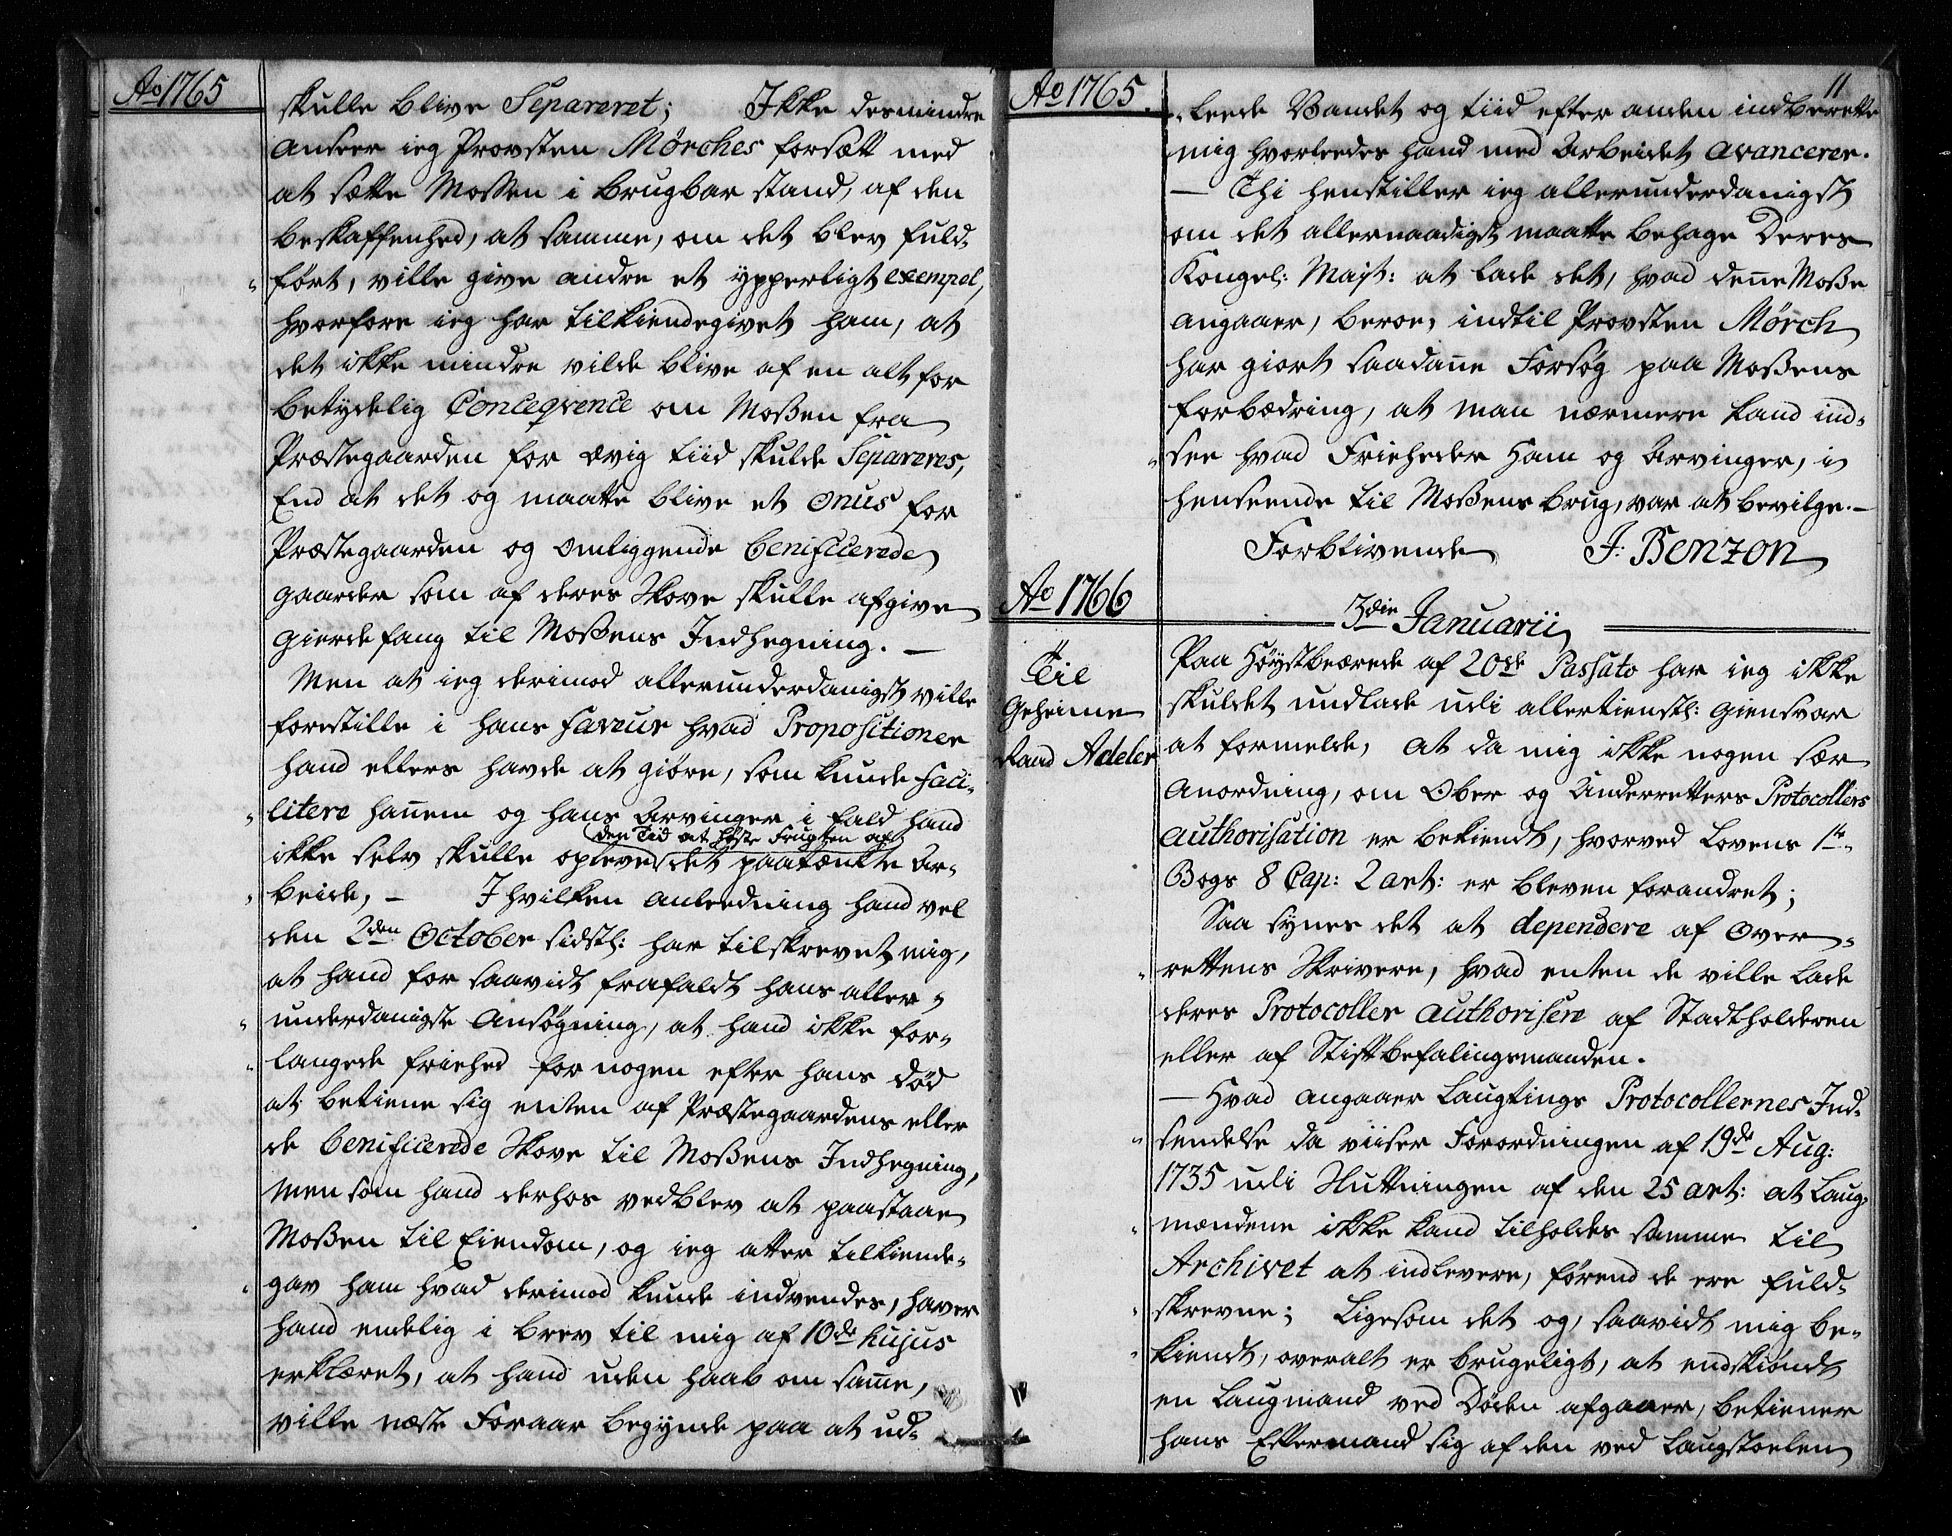 Ao 1765
skulle blive Separeret; Ikke desmindre
anseer ieg Provsten Mørches forsætt med
at sætte Mossen i brugbar stand, af den
beskaffenhed, at samme, om det blev fuld-
ført, ville give andre et ypperligt exempel,
hvorfore ieg har tilkiendegivet ham, at
det ikke mindre vilde blive af en alt for
betydelig Conceqvence om Mossen fra
Præstegaarden for Ævig tiid skulde Separeres,
End at det og maatte blive et onus for
Præstegaarden og omliggende beneficerede
gaarder som af deres Skove skulle afgive
gierdefang til Mossens Indhegning. —
Men at ieg derimod allerunderdanigst ville
forestille i hans faveur hvad Propositioner
hand ellers havde at giøre, som kunde faci-
litere hannem og hans Arvinger i fald hand
den Tid at høste Frugten af
ikke selv skulle opleve det paatænkte Ar-
beide, — I hvilken anleedning hand vel
den 2den October sidstl: har tilskrevet mig,
at hand for saavidt frafaldt hans aller-
underdanigste Ansøgning, at hand ikke for-
langede friehed for nogen efter hans død
at betiene sig enten af Præstegaardens eller
de benificerede Skove til Mossens Indhegning,
men som hand derhos vedblev at paastaae
Mossen til Eiendom, og ieg atter tilkiende-
gav ham hvad derimod kunde indvendes, haver
hand endelig i brev til mig af 10de hujus
erklæret, at hand uden haab om samme,
ville næste Foraar begynde paa at ud-
11
Ao 1765.
-leede Vandet og tiid efter anden indberette
mig hvorleedes hand med Arbeidet avancerer.
— Thi henstiller ieg allerunderdanigst
om det allernaadigst maatte behage Deres
Kongel: Majst: at lade det, hvad denne Mosse
angaaer, beroe, indtil Provsten Mørch
har giort saadanne Forsøg paa Mossens
forbædring, at man nærmere kand ind-
see hvad Frieheder ham og Arvinger, i
henseende til Mossens brug, var at bevilge. —
Forblivende J: Benzon
Ao 1766
3die Januarii
Til
Geheime
Raad Adeler
Paa høystbeærede af 20de Passato har ieg ikke
skuldet undlade udi allertienstl: giensvar
at formelde, at da mig ikke nogen sær
Anordning, om Ober og Underretters Protocollers
authorisation er bekiendt, hvorved Lovens 1te
Bogs 8 Cap: 2 art: er bleven forandret;
Saa synes det at dependere af Over-
rettens Skrivere, hvad enten de ville lade
deres Protocoller authorisere af Stadtholderen
eller af Stiftbefalingsmanden.
— Hvad angaaer Laugtings Protocollernes Ind-
sendelse da viiser Forordningen af 19de Aug:
1735 udi Slutningen af den 25 art: at Laug-
mændene ikke kand tilholdes samme til
Archivet at indlevere, førend de ere fuld-
skrevne; Ligesom det og, saavidt mig be-
kiendt, overalt er brugeligt, at endskiøndt
en Laugmand ved Døden afgaaer, betiener
hans Eftermand sig af den ved Laugstoelen